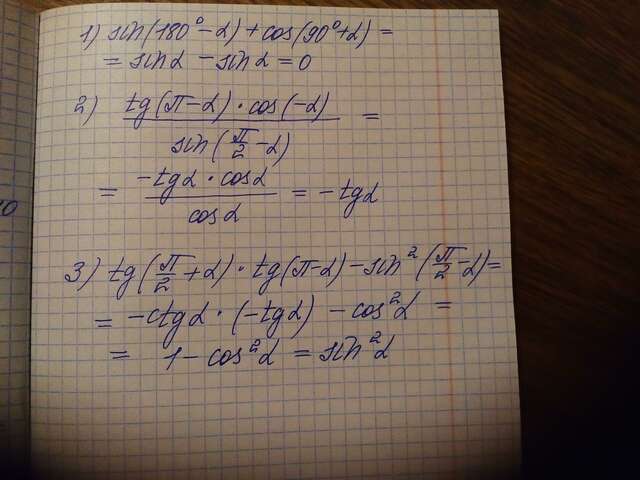 1) sin(180° - α) + cos(90° + α) =
= sin α - sin α = 0
2) tg(π - α) · cos(-α) / sin(π/2 - α) =
= -tg α · cos α / cos α = -tg α
3) tg(π/2 + α) · tg(π - α) - sin²(π/2 - α) =
= -ctg α · (-tg α) - cos²α =
= 1 - cos²α = sin²α